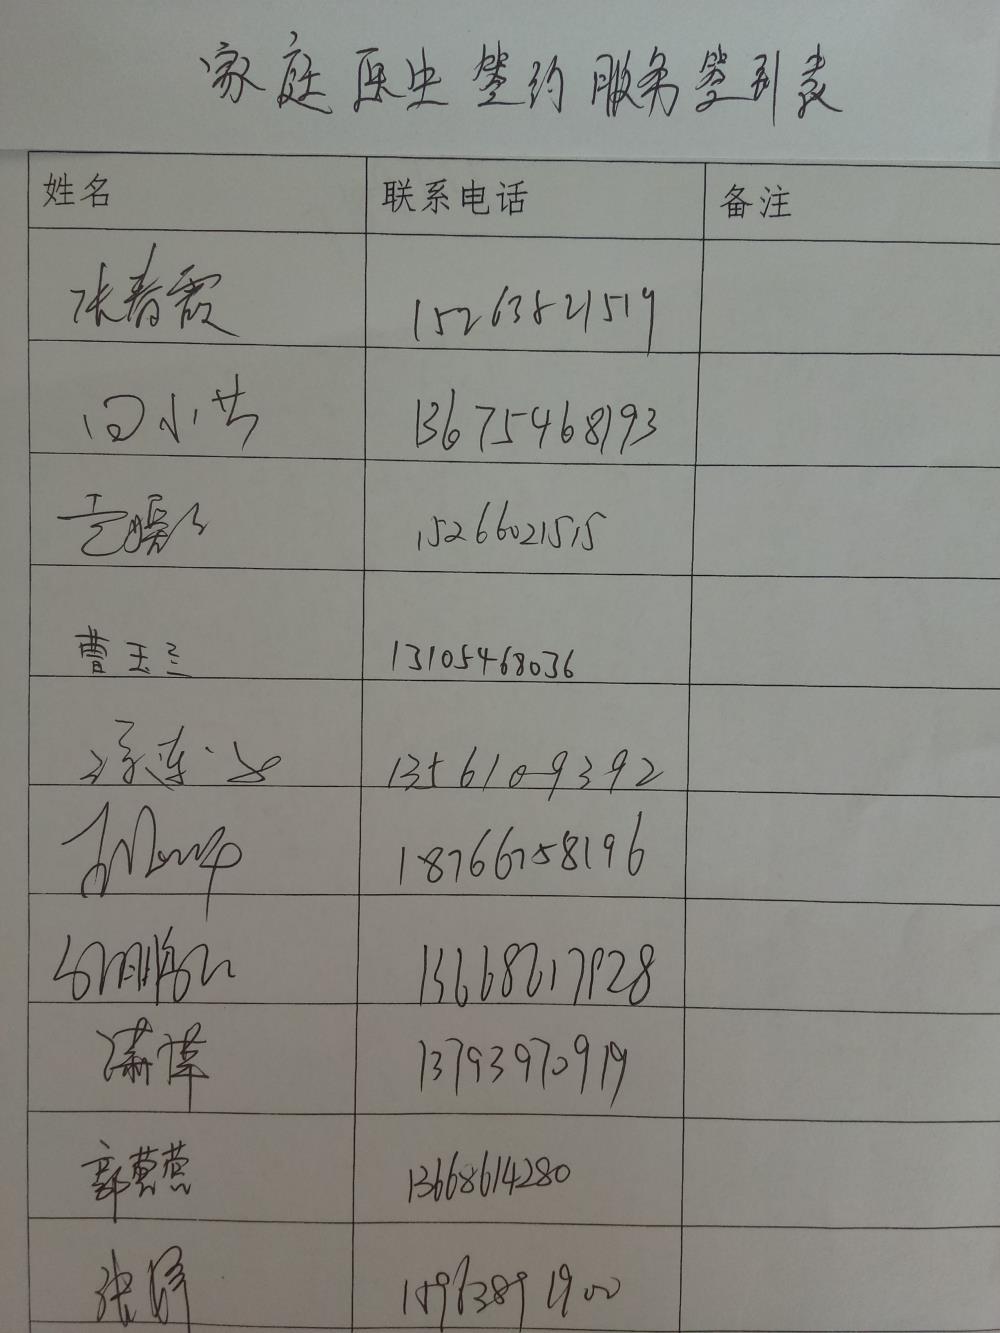 家庭医生签约服务签到表
姓名 联系电话 备注
张春霞 15263821519
13675468193
15266021515
曹玉兰 13105468036
1356109392
18766758196
13668617928
13793970919
郭慧燕 13668614280
张 18963891900